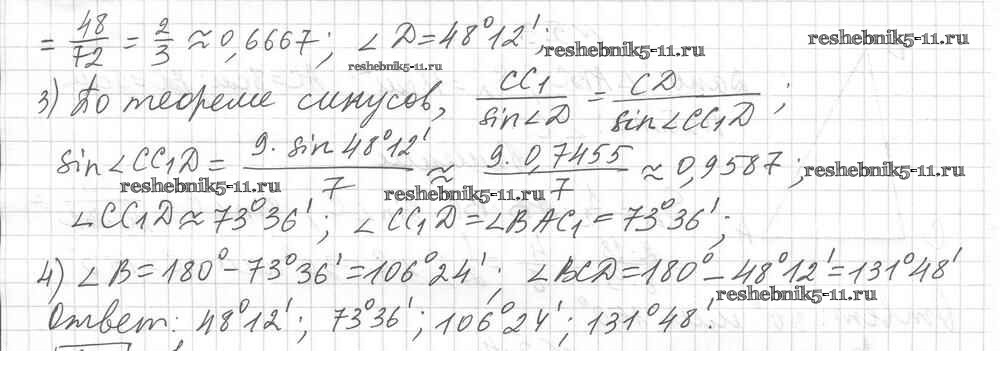 = 48/72 = 2/3 ≈ 0,6667; ∠D = 48°12'; reshebnik5-11.ru reshebnik5-11.ru
reshebnik5-11.ru
3) По теореме синусов, CC1/sin∠D = CD/sin∠CC1D ;
sin∠CC1D = 9·sin48°12'/7 ≈ 9·0,7455/7 ≈ 0,9587; reshebnik5-11.ru
reshebnik5-11.ru reshebnik5-11.ru
∠CC1D ≈ 73°36'; ∠CC1D = ∠BAC1 = 73°36';
4) ∠B = 180° - 73°36' = 106°24'; ∠BCD = 180° - 48°12' = 131°48'
reshebnik5-11.ru
Ответ: 48°12'; 73°36'; 106°24'; 131°48'.